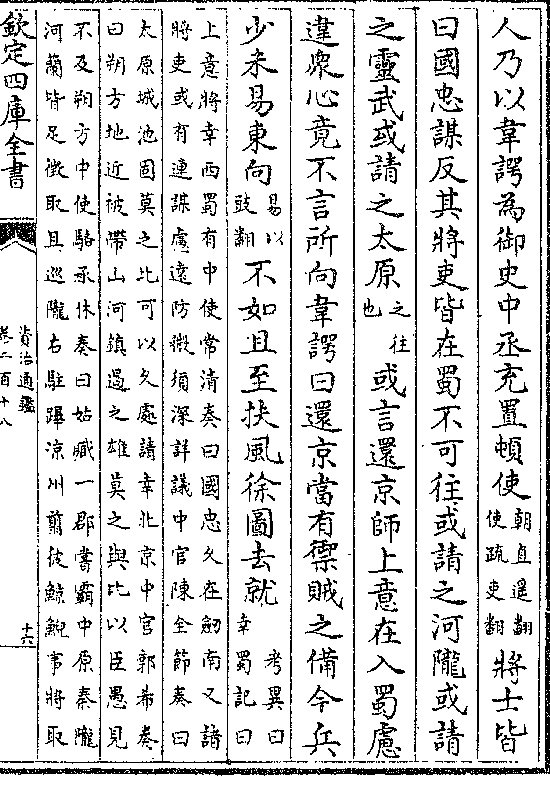 人乃以韋諤為御史中丞充置頓使朝直遥翻
使疏吏翻將士皆
曰國忠謀反其將吏皆在蜀不可往或請之河隴或請
之靈武或請之太原之往
也或言還京師上意在入蜀慮
違衆心竟不言所向韋諤曰還京當有禦賊之備今兵
少未易東向易以
豉翻不如且至扶風徐圖去就考異曰
幸蜀記曰
上意將幸西蜀有中使常清奏曰國忠久在劒南又諸
將吏或有連謀慮遠防微須深詳議中官陳全節奏曰
太原城池固莫之比可以久處請幸北京中官郭希奏
曰朔方地近被帶山河鎮遏之雄莫之與比以臣愚見
不及朔方中使駱承休奏曰姑臧一郡嘗霸中原秦隴
河蘭皆足徵取且巡隴右駐蹕凉州翦彼鯨鯢事將取
欽定四庫全書
資治通鑑
卷二百十八
十六